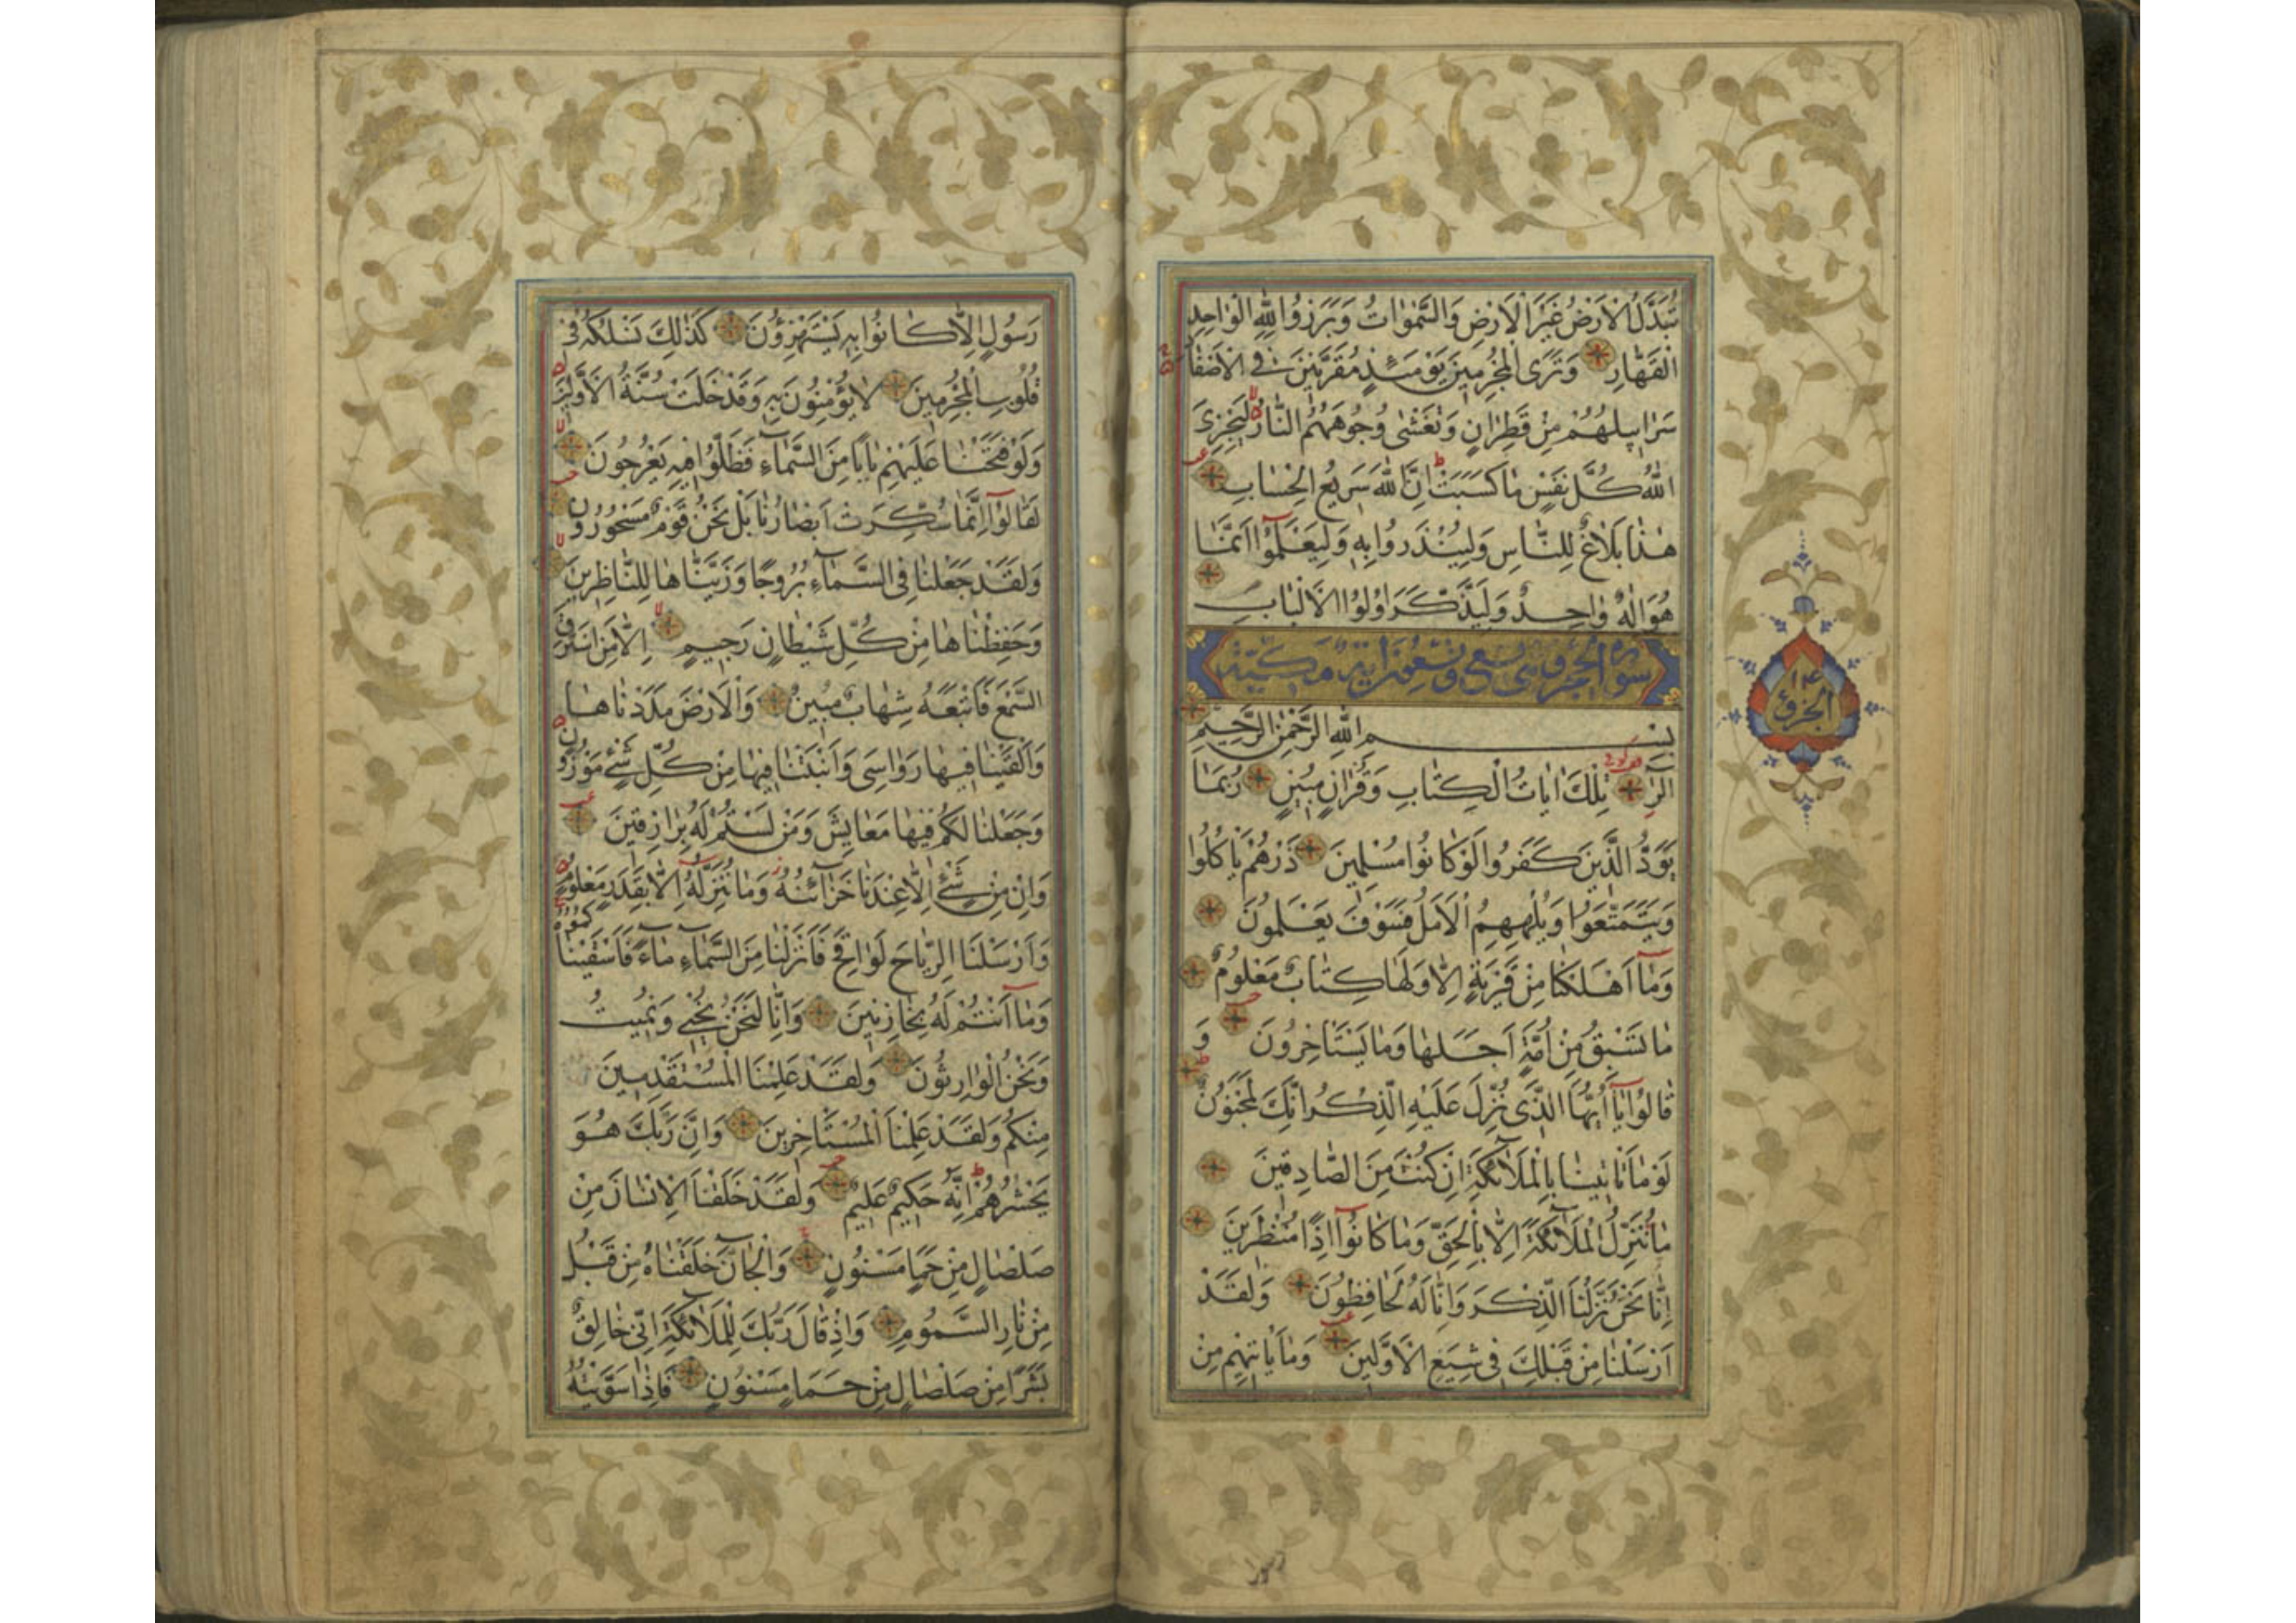 تُبَدَّلُ الْاَرْضُ غَيْرَ الْاَرْضِ وَالسَّمٰوَاتُ وَبَرَزُوا لِلّٰهِ الْوَاحِدِ
الْقَهَّارِ وَتَرَى الْمُجْرِمِينَ يَوْمَئِذٍ مُقَرَّنِينَ فِى الْاَصْفَادِ
سَرَابِيلُهُمْ مِنْ قَطِرَانٍ وَتَغْشٰى وُجُوهَهُمُ النَّارُ لِيَجْزِىَ
اللّٰهُ كُلَّ نَفْسٍ مَا كَسَبَتْ اِنَّ اللّٰهَ سَرِيعُ الْحِسَابِ
هٰذَا بَلَاغٌ لِلنَّاسِ وَلِيُنْذَرُوا بِهِ وَلِيَعْلَمُوٓا اَنَّمَا
هُوَ اِلٰهٌ وَاحِدٌ وَلِيَذَّكَّرَ اُولُوا الْاَلْبَابِ
سورة الحجر وهى تسع وتسعون اية مكية
بِسْمِ اللّٰهِ الرَّحْمٰنِ الرَّحِيمِ
الٓرٰ تِلْكَ اٰيَاتُ الْكِتَابِ وَقُرْاٰنٍ مُبِينٍ رُبَمَا
يَوَدُّ الَّذِينَ كَفَرُوا لَوْ كَانُوا مُسْلِمِينَ ذَرْهُمْ يَاْكُلُوا
وَيَتَمَتَّعُوا وَيُلْهِهِمُ الْاَمَلُ فَسَوْفَ يَعْلَمُونَ
وَمَآ اَهْلَكْنَا مِنْ قَرْيَةٍ اِلَّا وَلَهَا كِتَابٌ مَعْلُومٌ
مَا تَسْبِقُ مِنْ اُمَّةٍ اَجَلَهَا وَمَا يَسْتَاْخِرُونَ وَ
قَالُوا يَآ اَيُّهَا الَّذِى نُزِّلَ عَلَيْهِ الذِّكْرُ اِنَّكَ لَمَجْنُونٌ
لَوْمَا تَاْتِينَا بِالْمَلٰٓئِكَةِ اِنْ كُنْتَ مِنَ الصَّادِقِينَ
مَا نُنَزِّلُ الْمَلٰٓئِكَةَ اِلَّا بِالْحَقِّ وَمَا كَانُوٓا اِذًا مُنْظَرِينَ
اِنَّا نَحْنُ نَزَّلْنَا الذِّكْرَ وَاِنَّا لَهُ لَحَافِظُونَ وَلَقَدْ
اَرْسَلْنَا مِنْ قَبْلِكَ فِى شِيَعِ الْاَوَّلِينَ وَمَا يَاْتِيهِمْ مِنْ
الجزؤ ١٤
رَسُولٍ اِلَّا كَانُوا بِهِ يَسْتَهْزِؤُنَ كَذٰلِكَ نَسْلُكُهُ فِى
قُلُوبِ الْمُجْرِمِينَ لَا يُؤْمِنُونَ بِهِ وَقَدْ خَلَتْ سُنَّةُ الْاَوَّلِينَ
وَلَوْ فَتَحْنَا عَلَيْهِمْ بَابًا مِنَ السَّمَآءِ فَظَلُّوا فِيهِ يَعْرُجُونَ
لَقَالُوٓا اِنَّمَا سُكِّرَتْ اَبْصَارُنَا بَلْ نَحْنُ قَوْمٌ مَسْحُورُونَ
وَلَقَدْ جَعَلْنَا فِى السَّمَآءِ بُرُوجًا وَزَيَّنَّاهَا لِلنَّاظِرِينَ
وَحَفِظْنَاهَا مِنْ كُلِّ شَيْطَانٍ رَجِيمٍ اِلَّا مَنِ اسْتَرَقَ
السَّمْعَ فَاَتْبَعَهُ شِهَابٌ مُبِينٌ وَالْاَرْضَ مَدَدْنَاهَا
وَاَلْقَيْنَا فِيهَا رَوَاسِىَ وَاَنْبَتْنَا فِيهَا مِنْ كُلِّ شَىْءٍ مَوْزُونٍ
وَجَعَلْنَا لَكُمْ فِيهَا مَعَايِشَ وَمَنْ لَسْتُمْ لَهُ بِرَازِقِينَ
وَاِنْ مِنْ شَىْءٍ اِلَّا عِنْدَنَا خَزَآئِنُهُ وَمَا نُنَزِّلُهُٓ اِلَّا بِقَدَرٍ مَعْلُومٍ
وَاَرْسَلْنَا الرِّيَاحَ لَوَاقِحَ فَاَنْزَلْنَا مِنَ السَّمَآءِ مَآءً فَاَسْقَيْنَاكُمُوهُ
وَمَآ اَنْتُمْ لَهُ بِخَازِنِينَ وَاِنَّا لَنَحْنُ نُحْيِى وَنُمِيتُ
وَنَحْنُ الْوَارِثُونَ وَلَقَدْ عَلِمْنَا الْمُسْتَقْدِمِينَ
مِنْكُمْ وَلَقَدْ عَلِمْنَا الْمُسْتَاْخِرِينَ وَاِنَّ رَبَّكَ هُوَ
يَحْشُرُهُمْ اِنَّهُ حَكِيمٌ عَلِيمٌ وَلَقَدْ خَلَقْنَا الْاِنْسَانَ مِنْ
صَلْصَالٍ مِنْ حَمَاٍ مَسْنُونٍ وَالْجَآنَّ خَلَقْنَاهُ مِنْ قَبْلُ
مِنْ نَارِ السَّمُومِ وَاِذْ قَالَ رَبُّكَ لِلْمَلٰٓئِكَةِ اِنِّى خَالِقٌ
بَشَرًا مِنْ صَلْصَالٍ مِنْ حَمَاٍ مَسْنُونٍ فَاِذَا سَوَّيْتُهُ